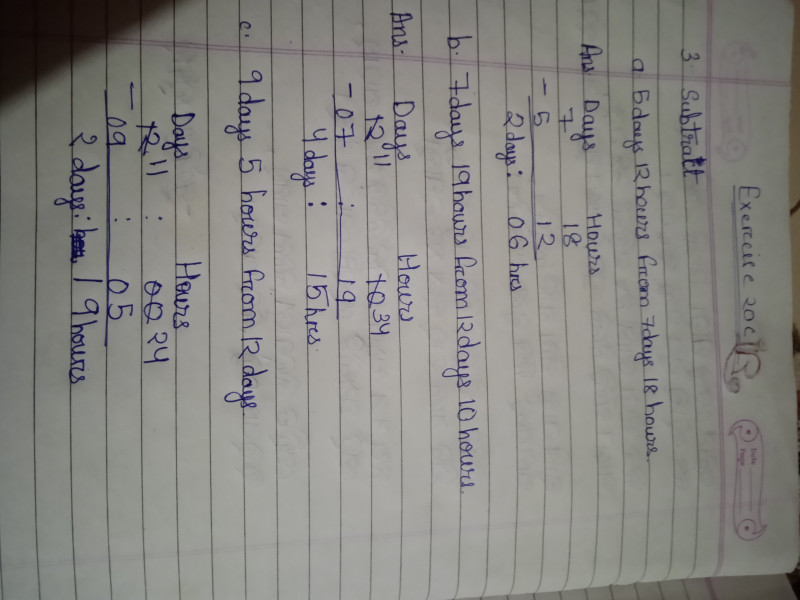 Exercise 20C
Date
Page
3. Subtract
a 5days 12hours from 7days 18 hours.
Ans Days Hours
7 18
- 5 12
2 days: 06 hrs
b. 7days 19hours from 12days 10 hours.
Ans. Days Hours
12 11 10 34
- 07 : 19
4 days : 15 hrs.
c. 9 days 5 hours from 12 days
Days Hours
12 11 : 00 24
- 09 : 05
2 days: 19 hours